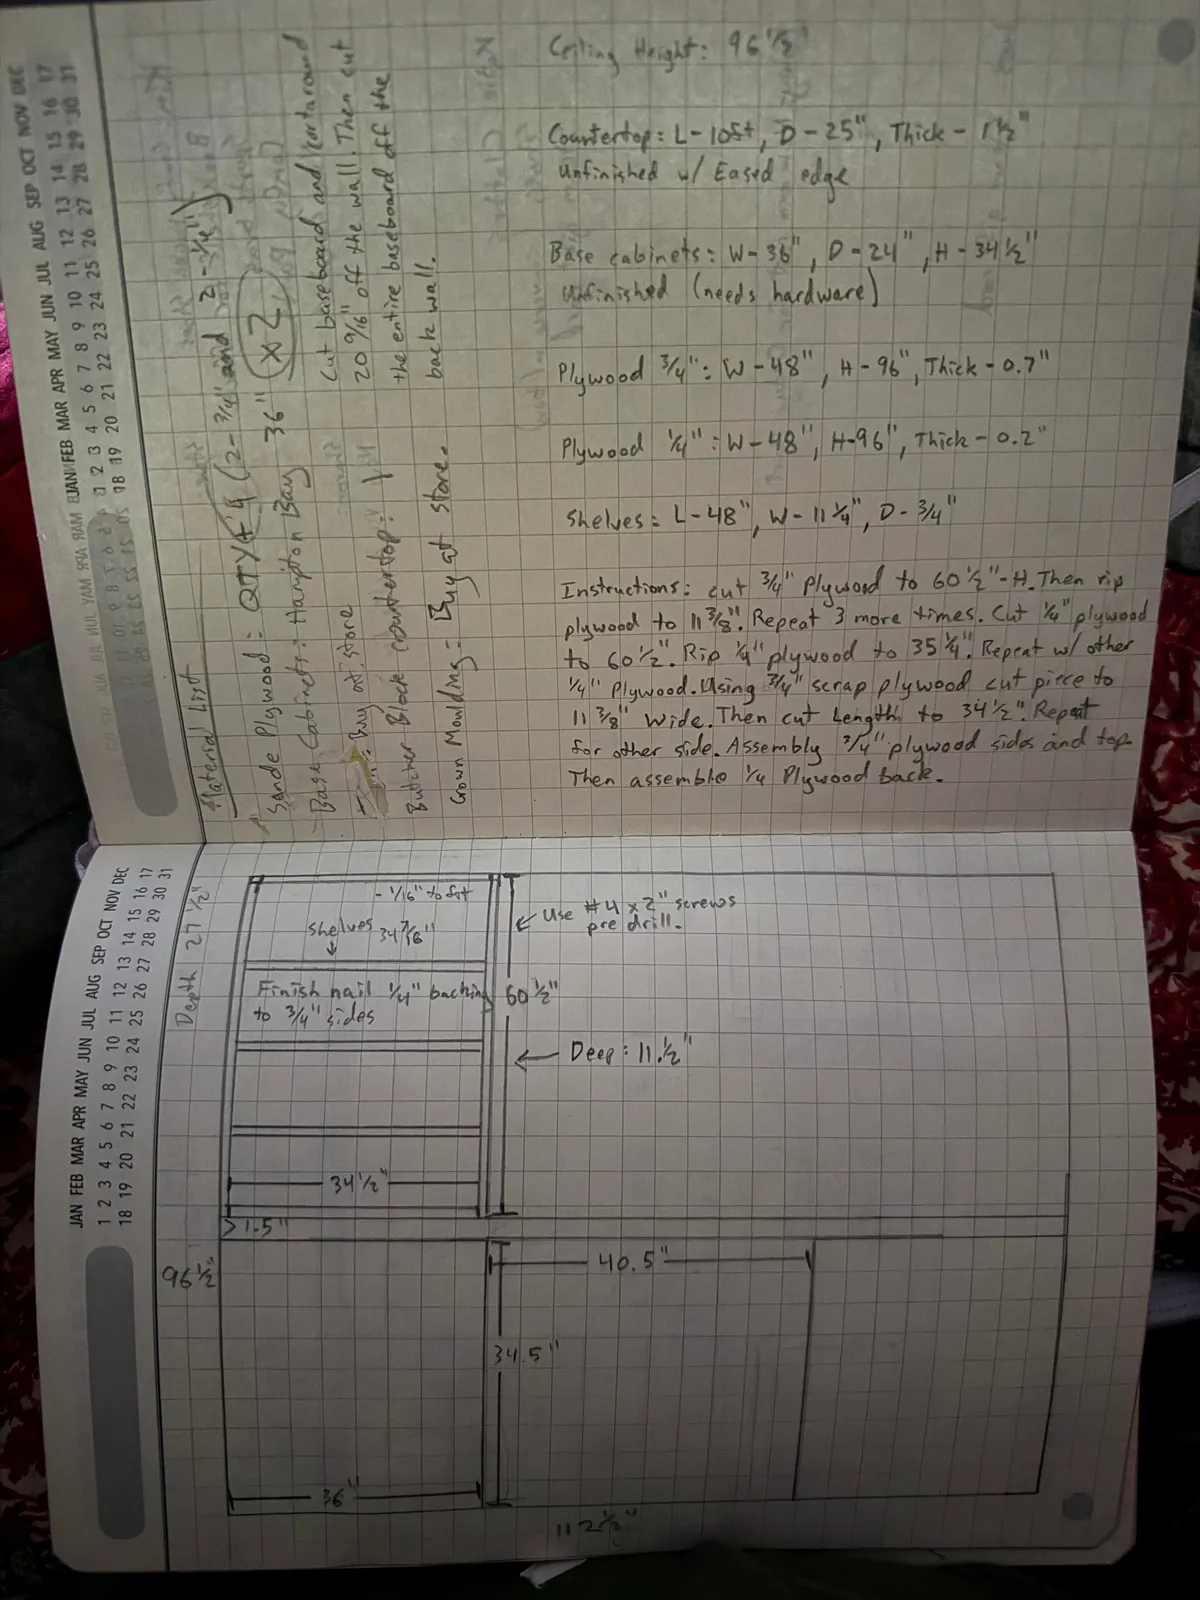 JAN FEB MAR APR MAY JUN JUL AUG SEP OCT NOV DEC
1 2 3 4 5 6 7 8 9 10 11 12 13 14 15 16 17
18 19 20 21 22 23 24 25 26 27 28 29 30 31
Material List
Sande Plywood: QTY 4 (2-3/4" and 2-1/4")
Base Cabinets: Hampton Bay 36" x2
Buy at store
Butcher Block countertop:
Crown Moulding: Buy at store.
Cut baseboard and
20 9/16" off the wall. Then cut
the entire baseboard off the
back wall.
Ceiling Height: 96 1/2"
Countertop: L-10ft, D-25", Thick-1 1/2"
Unfinished w/ Eased edge
Base cabinets: W-36", D-24", H-34 1/2"
Unfinished (needs hardware)
Plywood 3/4": W-48", H-96", Thick-0.7"
Plywood 1/4": W-48", H-96", Thick-0.2"
Shelves: L-48", W-11 1/4", D-3/4"
Instructions: cut 3/4" Plywood to 60 1/2"-H. Then rip
plywood to 11 3/8". Repeat 3 more times. Cut 1/4" plywood
to 60 1/2". Rip 1/4" plywood to 35 1/4". Repeat w/ other
1/4" Plywood. Using 3/4" scrap plywood cut piece to
11 3/8" wide. Then cut Length to 34 1/2". Repeat
for other side. Assembly 3/4" plywood sides and top.
Then assemble 1/4 Plywood back.
JAN FEB MAR APR MAY JUN JUL AUG SEP OCT NOV DEC
1 2 3 4 5 6 7 8 9 10 11 12 13 14 15 16 17
18 19 20 21 22 23 24 25 26 27 28 29 30 31
Depth 27 1/2"
96 1/2"
-1/16" to fit
shelves 34 7/16"
Finish nail 1/4" backing
to 3/4" sides
34 1/2"
> 1.5"
Use #4 x 2" screws
pre drill.
60 1/2"
Deep: 11.1/2"
40.5"
34.5"
36"
112 1/2"